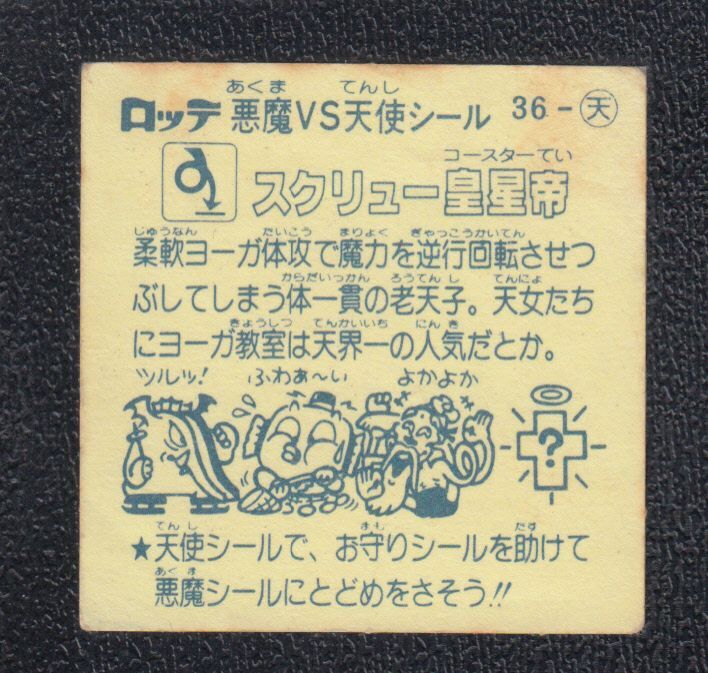 あくま てんし
ロッテ 悪魔VS天使シール 36-天
コースターてい
スクリュー皇星帝
じゅうなん たいこう まりょく ぎゃっこうかいてん
柔軟ヨーガ体攻で魔力を逆行回転させつ
からだいっかん ろうてんし てんにょ
ぶしてしまう体一貫の老天子。天女たち
きょうしつ てんかいいち にんき
にヨーガ教室は天界一の人気だとか。
ツルッ! ふわぁ〜い よかよか
?
てんし まも たす
★天使シールで、お守りシールを助けて
あくま
悪魔シールにとどめをさそう!!